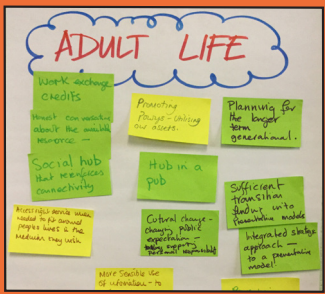 ADULT LIFE
Work exchange
credits
Honest conversation
about the available
resource —
Social hub
that reinforces
connectivity
needed to fit around
people's lives & the
Promoting
Power - Utilising
our assets.
Hub in a
pub
Cultural change -
changing public
expectation —
personal responsibility
More sensible use
of information - to
Planning for
the longer
term
generational.
Sufficient
transition
funding into
preventative models
Integrated strategic
approach —
to a preventative
model!